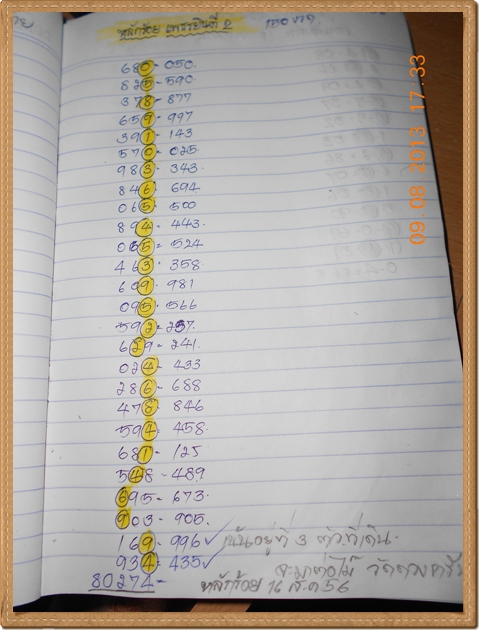 หลักร้อย เพชรยินดี 2
680 - 050.
825 - 590
378 - 877
659 - 997
391 - 143
570 - 025.
983 - 343
846 - 694
065 - 500
894 - 443.
055 = 524
463 - 358
609 - 981
095 - 566
592 - 257.
629 - 241.
024 - 433
286 - 688
478 - 846
594 - 458.
681 - 125
548 - 489
695 - 673.
903 - 905.
169 - 996 ✓ เน้นอยู่ที่ 3 ตัวที่เดิน.
934 - 435 ✓
80274 -
หลักร้อย 16 ส.ค 56
09.08.2013 17:33